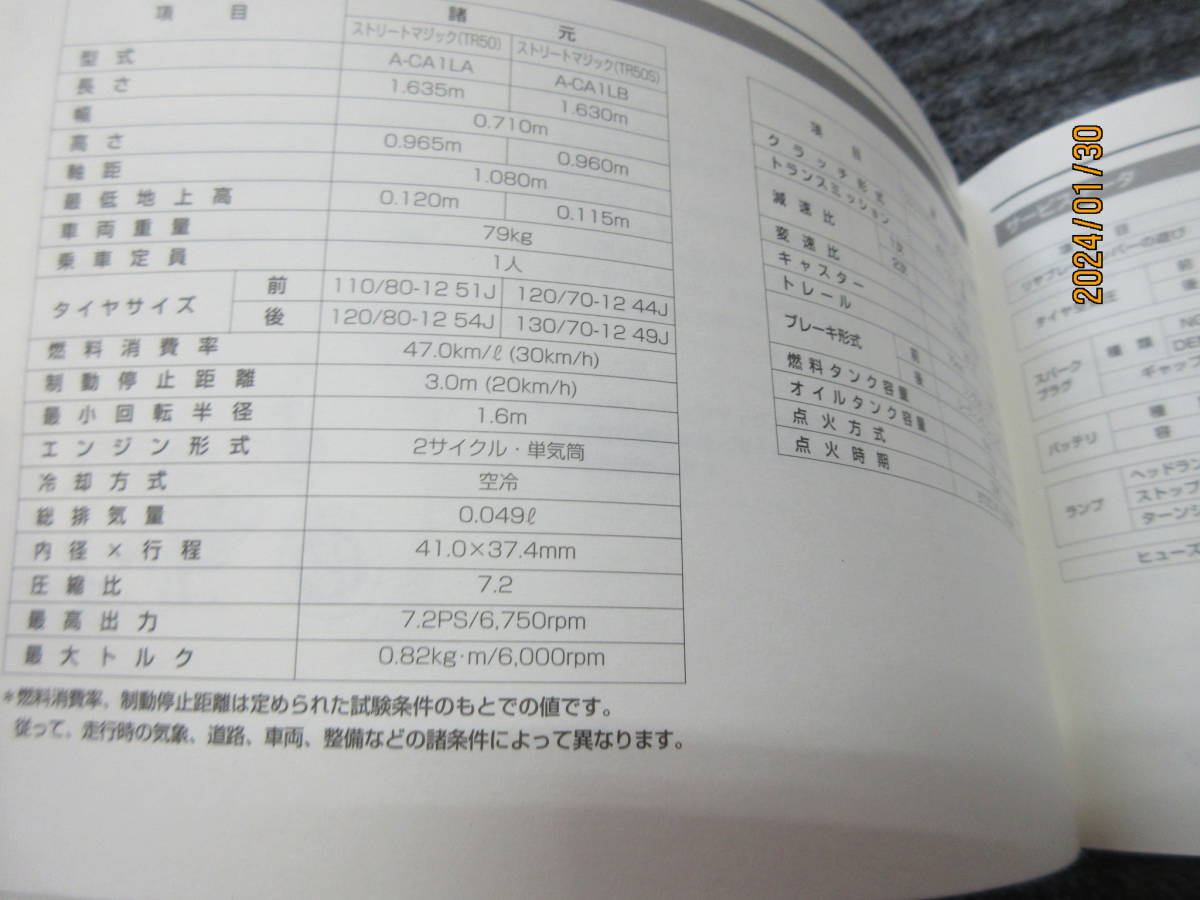 項目 諸元
ストリートマジック(TR50) ストリートマジック(TR50S)
型式 A-CA1LA A-CA1LB
長さ 1.635m 1.630m
幅 0.710m
高さ 0.965m 0.960m
軸距 1.080m
最低地上高 0.120m 0.115m
車両重量 79kg
乗車定員 1人
タイヤサイズ 前 110/80-12 51J 120/70-12 44J
後 120/80-12 54J 130/70-12 49J
燃料消費率 47.0km/ℓ (30km/h)
制動停止距離 3.0m (20km/h)
最小回転半径 1.6m
エンジン形式 2サイクル・単気筒
冷却方式 空冷
総排気量 0.049ℓ
内径×行程 41.0×37.4mm
圧縮比 7.2
最高出力 7.2PS/6,750rpm
最大トルク 0.82kg·m/6,000rpm
*燃料消費率，制動停止距離は定められた試験条件のもとでの値です。
従って，走行時の気象、道路、車両、整備などの諸条件によって異なります。
項目
クラッチ形式
トランスミッション
減速比 1次
2次
変速比
キャスター
トレール
ブレーキ形式 前
後
燃料タンク容量
オイルタンク容量
点火方式
点火時期
サービスデータ
項目
タイヤ空気圧 前
後
スパークプラグ 種類
ギャップ
バッテリ 種
容
ランプ ヘッドラン
ストップ
ターンシ
ヒューズ
2024/01/30